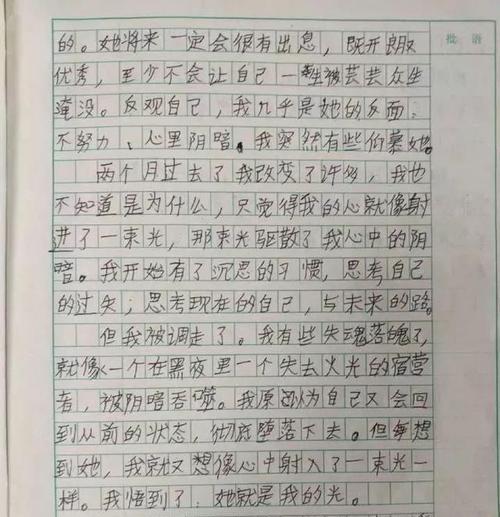 批 语
的。她将来一定会很有出息，既开朗又
优秀，至少不会让自己一生被芸芸众生
淹没。反观自己，我几乎是她的反面：
不努力、心里阴暗。我突然有些伯慕她。
两个月过去了我改变了许多，我也
不知道是为什么，只觉得我的心就像射
进了一束光，那束光驱散了我心中的阴
暗。我开始有了沉思的习惯，思考自己
的过失；思考现在的自己，与未来的路。
但我被调走了。我有些失魂落魄了，
就像一个在黑夜里一个失去火光的宿营
者，被阴暗吞噬。我原以为自己又会回
到从前的状态，彻底堕落下去。但每想
到她，我就又想像心中射入了一束光一
样。我悟到了：她就是我的光。